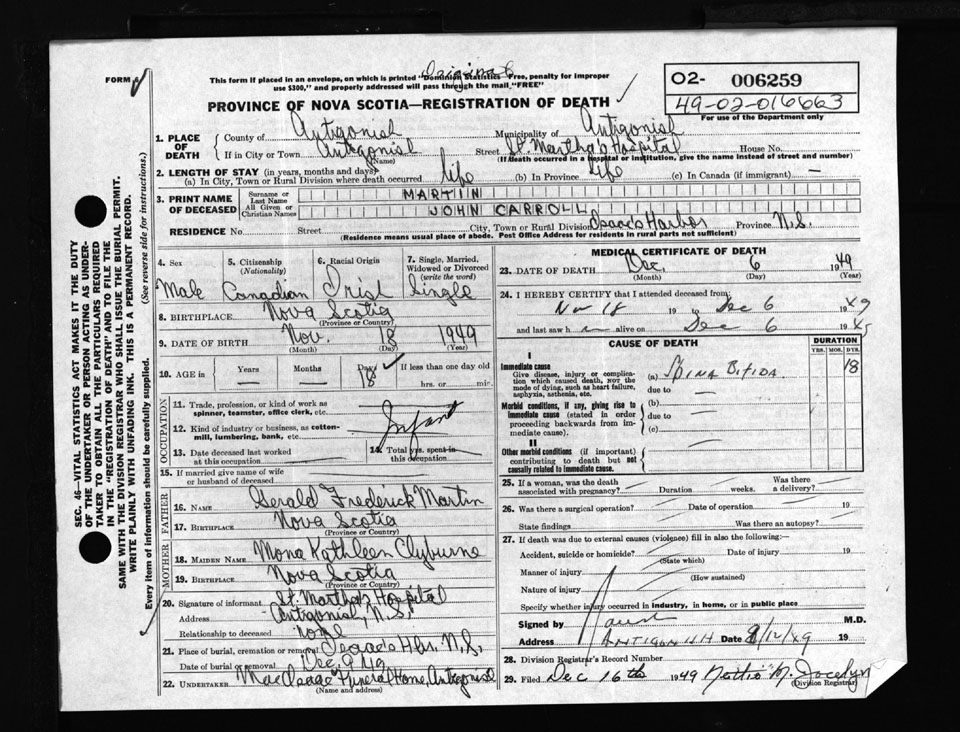 FORM V
Original
This form if placed in an envelope, on which is printed "Dominion Statistics Free, penalty for improper
use $300," and properly addressed will pass through the mail "FREE"
O2- 006259
49-02-016663
For use of the Department only
PROVINCE OF NOVA SCOTIA—REGISTRATION OF DEATH
1. PLACE OF DEATH
County of Antigonish Municipality of Antigonish
If in City or Town Antigonish Street St. Martha's Hospital House No.
(Name) (If death occurred in a hospital or institution, give the name instead of street and number)
2. LENGTH OF STAY (in years, months and days)
(a) In City, Town or Rural Division where death occurred life (b) In Province life (c) In Canada (if immigrant) —
3. PRINT NAME OF DECEASED
Surname or Last Name MARTIN
All Given or Christian Names JOHN CARROLL
RESIDENCE No. Street City, Town or Rural Division Isaac's Harbor Province N.S.
(Residence means usual place of abode. Post Office Address for residents in rural parts not sufficient)
4. Sex 5. Citizenship (Nationality) 6. Racial Origin 7. Single, Married, Widowed or Divorced (write the word)
Male Canadian Irish Single
8. BIRTHPLACE Nova Scotia
(Province or Country)
9. DATE OF BIRTH Nov. 18 1949
(Month) (Day) (Year)
10. AGE in Years Months Days If less than one day old
18 hrs. or min.
OCCUPATION
11. Trade, profession, or kind of work as
spinner, teamster, office clerk, etc.
Infant
12. Kind of industry or business, as cotton-
mill, lumbering, bank, etc.
13. Date deceased last worked at this occupation 14. Total yrs. spent in this occupation
15. If married give name of wife
or husband of deceased
FATHER
16. NAME Gerald Frederick Martin
17. BIRTHPLACE Nova Scotia
(Province or Country)
MOTHER
18. MAIDEN NAME Mona Kathleen Clyburne
19. BIRTHPLACE Nova Scotia
(Province or Country)
20. Signature of informant St. Martha's Hospital
Address Antigonish, N.S.
Relationship to deceased none
21. Place of burial, cremation or removal Isaac's Hbr. N.S.
Date of burial or removal Dec. 9 49
22. UNDERTAKER MacIsaac Funeral Home, Antigonish
(Name and address)
MEDICAL CERTIFICATE OF DEATH
23. DATE OF DEATH Dec. 6 1949
(Month) (Day) (Year)
24. I HEREBY CERTIFY that I attended deceased from
Nov 18 19 to Dec 6 1949
and last saw h m alive on Dec 6 19
CAUSE OF DEATH DURATION
YRS. MOS. DYS.
I
Immediate cause
Give disease, injury or complication which caused death, NOT the mode of dying, such as heart failure, asphyxia, asthenia, etc.
(a) SPINA BIFIDA 18
due to
Morbid conditions, if any, giving rise to immediate cause (stated in order proceeding backwards from immediate cause).
(b)
due to
(c)
II
Other morbid conditions (if important) contributing to death but not causally related to immediate cause.
25. If a woman, was the death associated with pregnancy? Duration weeks. Was there a delivery?
26. Was there a surgical operation? Date of operation 19
State findings Was there an autopsy?
27. If death was due to external causes (violence) fill in also the following:
Accident, suicide or homicide? Date of injury 19
(State which)
Manner of injury
(How sustained)
Nature of injury
Specify whether injury occurred in industry, in home, or in public place
Signed by M.D.
Address ANTIGONISH Date 8/12/49 19
28. Division Registrar's Record Number
29. Filed Dec 16th 1949 Nettie M. Jocelyn
(Division Registrar)
SEC. 46—VITAL STATISTICS ACT MAKES IT THE DUTY
OF THE UNDERTAKER OR PERSON ACTING AS UNDER-
TAKER TO OBTAIN ALL THE PARTICULARS REQUIRED
IN THE "REGISTRATION OF DEATH" AND TO FILE THE
SAME WITH THE DIVISION REGISTRAR WHO SHALL ISSUE THE BURIAL PERMIT.
WRITE PLAINLY WITH UNFADING INK. THIS IS A PERMANENT RECORD.
Every item of information should be carefully supplied. (See reverse side for instructions.)